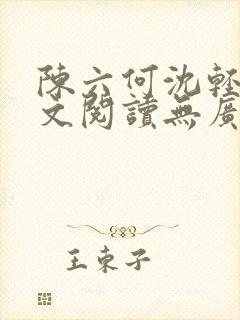 陳六何沈輕
文閱讀無廣
王東子